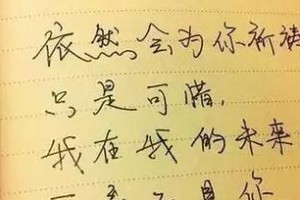 依然会为你祈祷
只是可惜,
我在我的未来